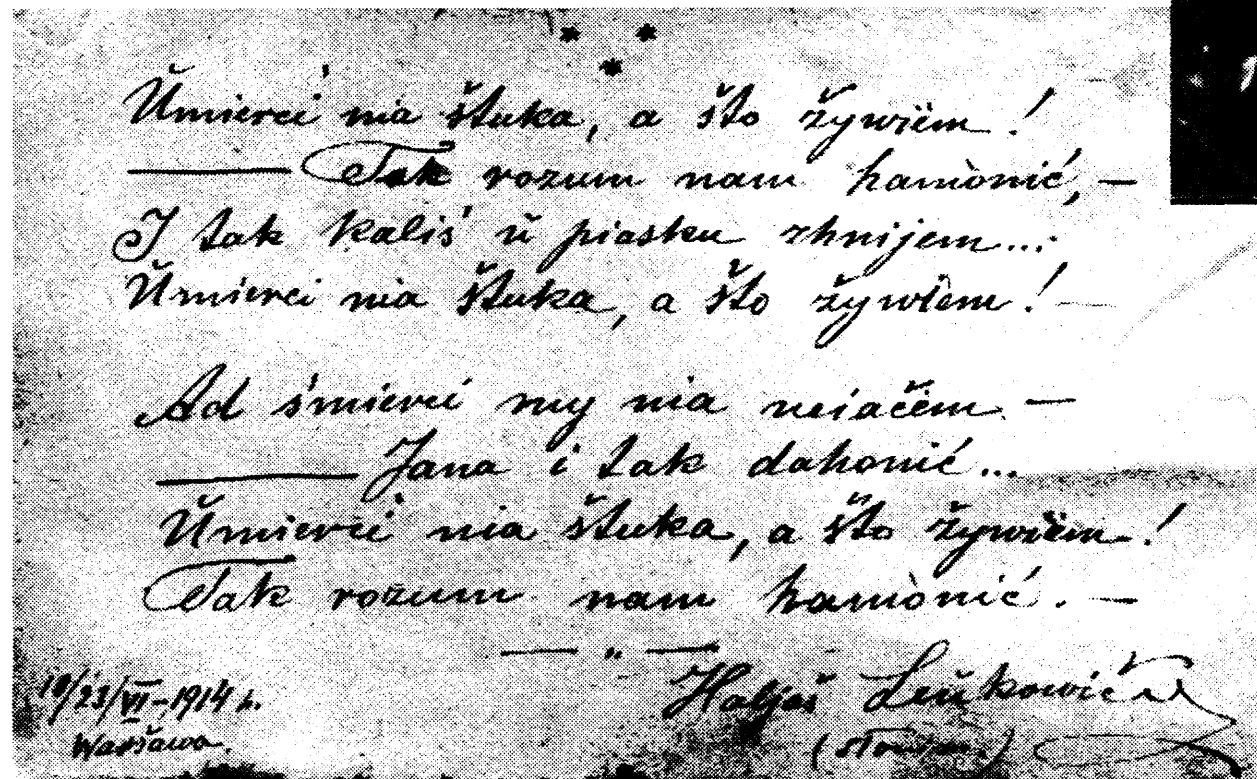 * *
*
Ŭmierci nia štuka, a što žywiëm!
— Tak rozum nam hamònić, —
I tak kaliś ŭ piasku zhnijem...
Ŭmierci nia štuka, a što žywiëm! —
Ad śmierci my nia uciačëm —
— Jana i tak dahonić...
Ŭmierci nia štuka, a što žywiëm!
Tak rozum nam hamònić. —
— " —
Haljaš Leŭkowič
10/23/VI-1914 h.
Waršawa.